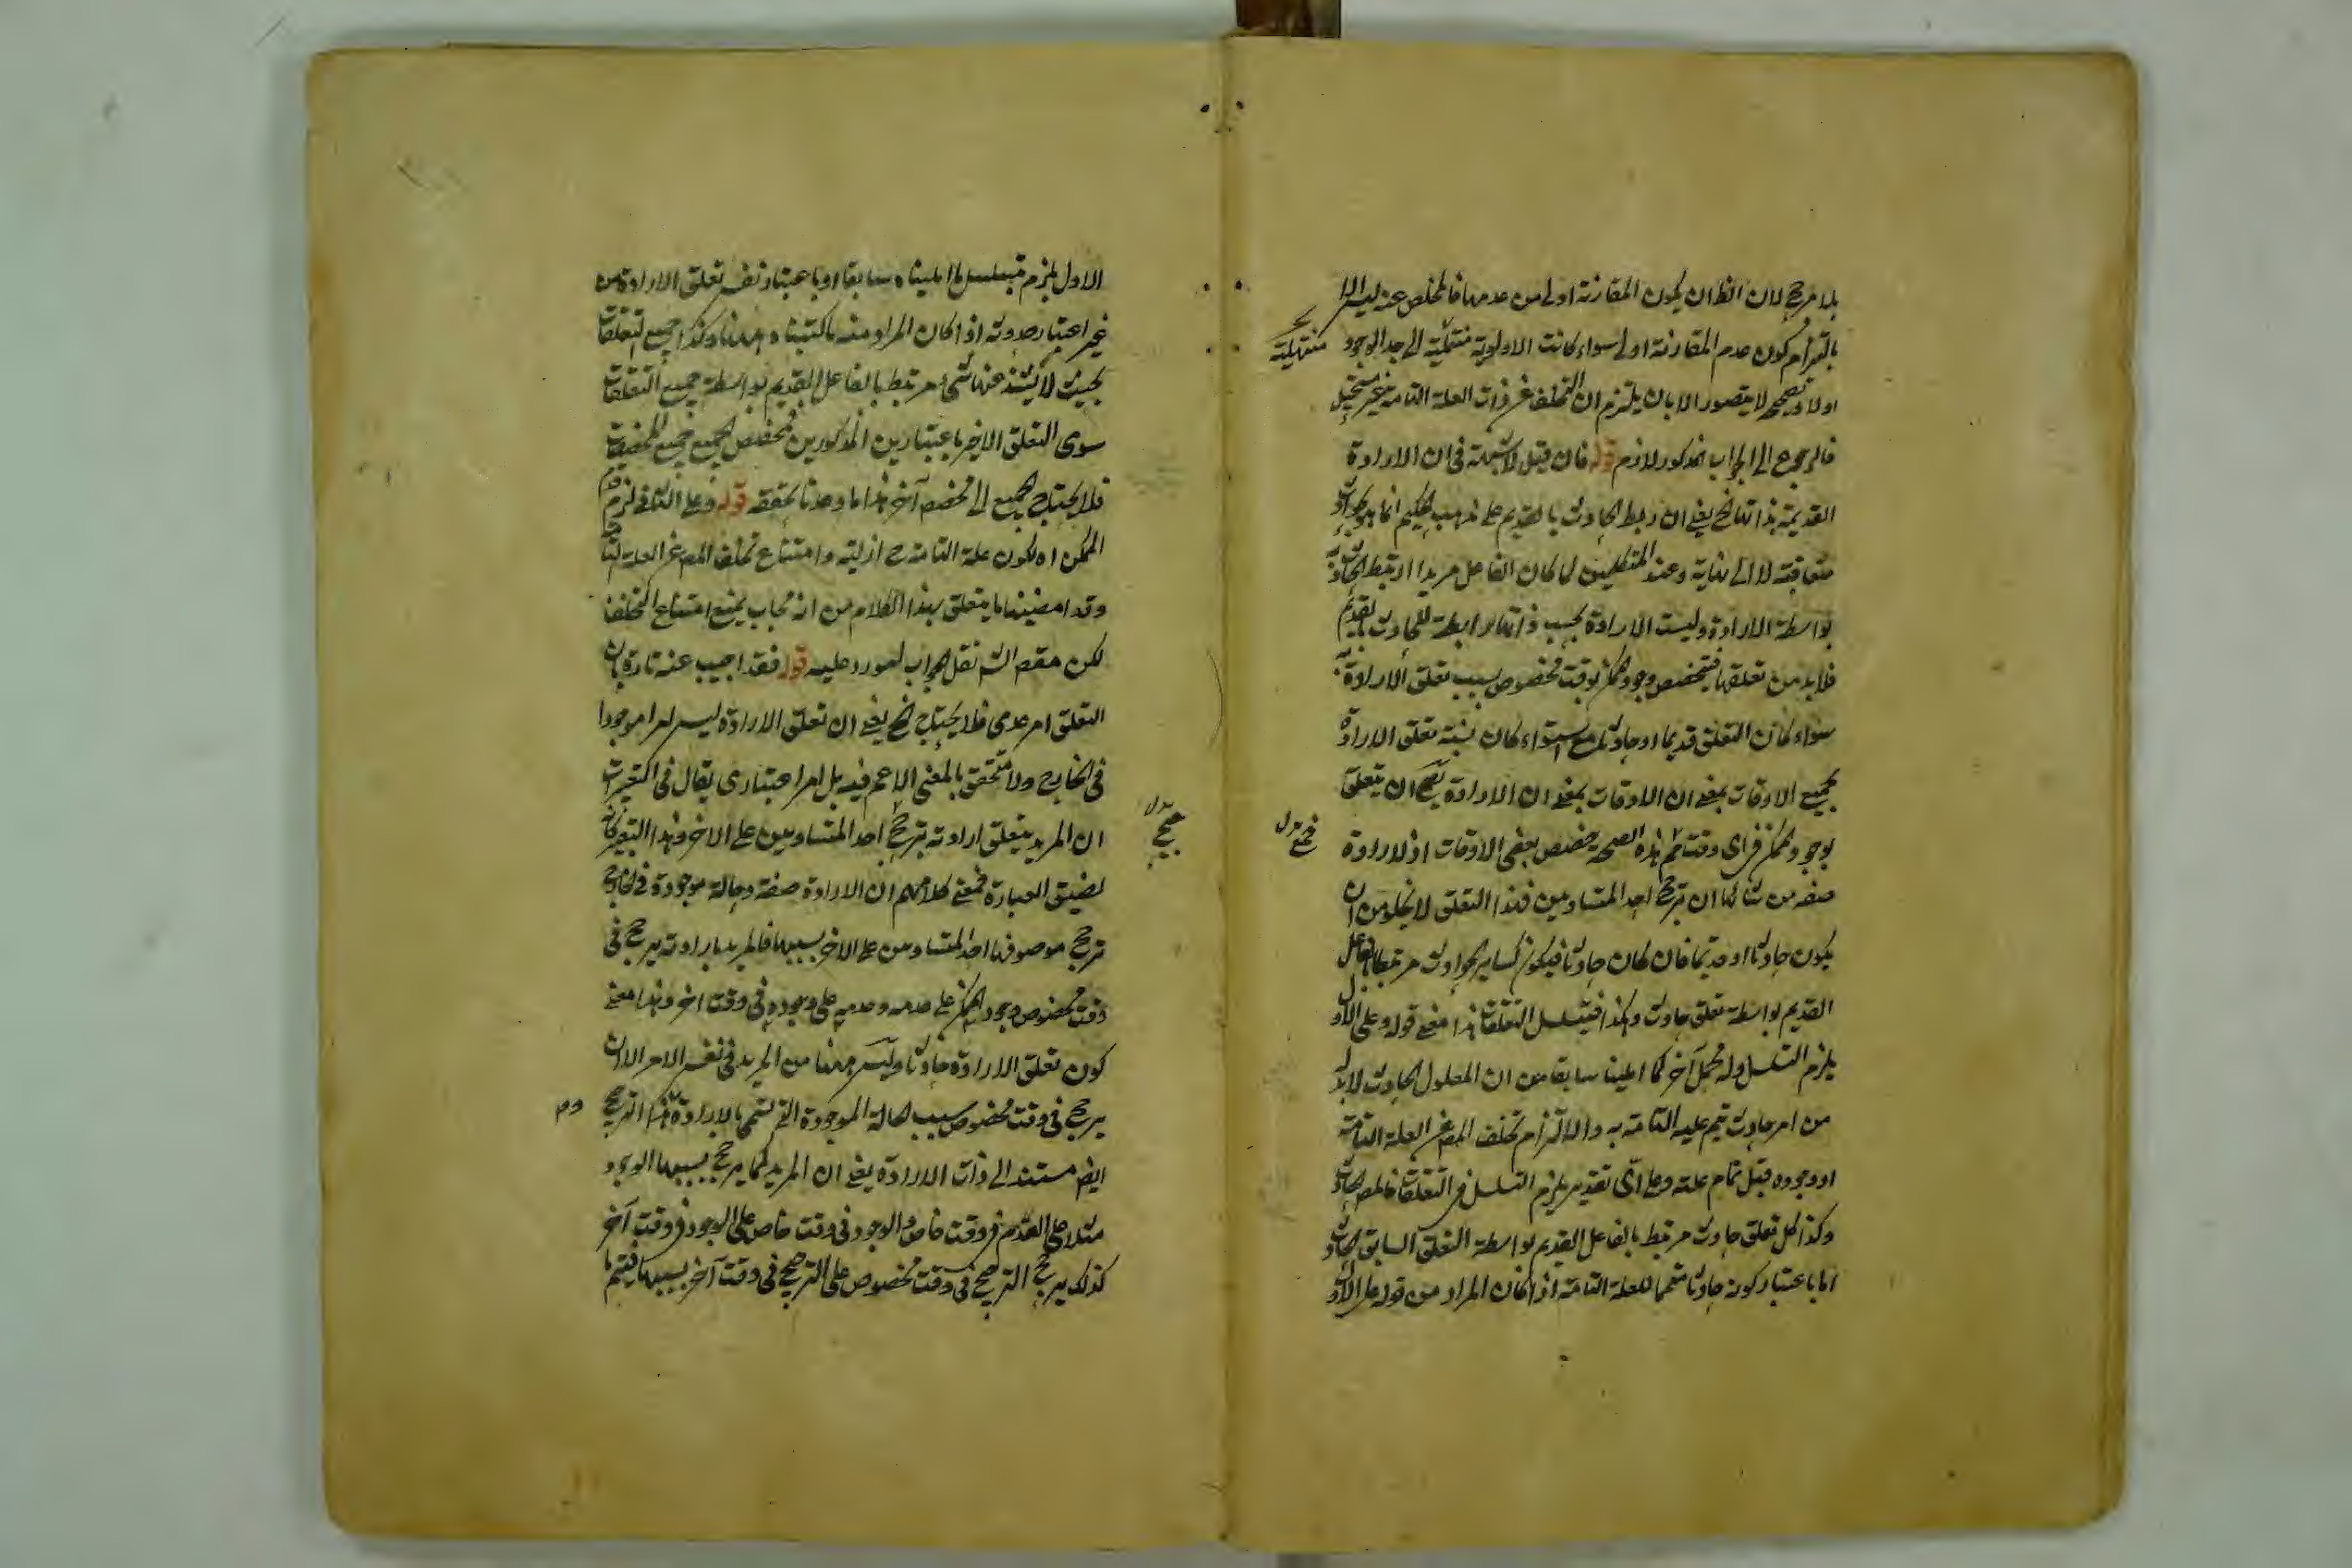 بلا مرجح لان الظ ان يكون المقارنة اولى من عدمها فالمخلص عنه ليس الا
بالتزام كون عدم المقارنة اولى سواء كانت الاولوية منتهية الى حد الوجود
اولا وتصحيحه لا يتصور الا بان يلتزم ان التخلف عن ذات العلة التامة غير مستحيل
فالرجوع الى الجواب المذكور لازم قوله فان قيل لا شبهة فى ان الارادة
القديمة بذاتها الخ يعنى ان ربط الحادث بالقديم على مذهب الحكيم انما هو بحوادث
متعاقبة لا الى نهاية وعند المتكلمين لما كان الفاعل مريدا ارتبط الحادث
بواسطة الارادة وليست الارادة بحسب ذاتها رابطة للحادث بالقديم
فلا بد من تعلقها فتخصص وجود الممكن بوقت مخصوص بسبب تعلق الارادة به
سواء كان التعلق قديما او حادثا مع استواء كان نسبة تعلق الارادة
بجميع الاوقات بمعنى ان الاوقات بمعنى ان الارادة يصح ان يتعلق
بوجود الممكن فى اى وقت ثم هذه الصحة خصص بعض الاوقات اذ الارادة
صفة من شانها ان ترجح احد المتساويين فهذا التعلق لا يخلو من ان
يكون حادثا او قديما فان كان حادثا فيكون كساير الحوادث مرتبطا بالفاعل
القديم بواسطة تعلق حادث وهكذا فيتسلسل التعلقات هذا معنى قوله وعلى الاول
يلزم التسلسل وله محمل آخر كما املينا سابقا من ان المعلول الحادث لا بد له
من امر حادث يتم عليه التامة به والا التزام تخلف المع عن العلة التامة
او وجوده قبل تمام علته وعلى اى تقدير يلزم التسلسل فى التعلقات فالمع الحادث
وكذا كل تعلق حادث مرتبط بالفاعل القديم بواسطة التعلق السابق الحادث
اما باعتبار كونه حادثا متمما للعلة التامة اذا كان المراد من قوله على الاول
منتهية
الاول يلزم تسلسل ما املينا سابقا او باعتبار نفس تعلق الارادة من
غير اعتبار حدوثه اذا كان المراد منه ما كتبناه ههنا وكذا جميع التعلقات
بحيث لا يشذ عنها شئ مرتبط بالفاعل القديم بواسطة جميع التعلقات
سوى التعلق الاخير باعتبارين المذكورين فمخصص الجميع جميع المخصصات
فلا يحتاج الجميع الى مخصص آخر هذا ما وعدنا تحققه قوله وعلى الثانى لزم قدم
الممكن اه لكون علة التامة ح ازلية وامتناع تخلف المع عن العلة التامة
وقد امضينا ما يتعلق بهذا الكلام من انه يجاب بمنع امتناع التخلف
لكن مقصود الش نقل الجواب لمورد عليه قوله فقد اجيب عنه تارة بان
التعلق امر عدمى فلا يحتاج الخ يعنى ان تعلق الارادة ليس امرا موجودا
فى الخارج ولا متحقق بالمعنى الاعم فيه بل امر اعتبارى يقال فى التعبيرات
ان المريد يتعلق ارادته بترجيح احد المتساويين على الاخر وهذا التعبير كانه
لضيق العبارة فمعنى كلامهم ان الارادة صفة وحالة موجودة فى الخارج
ترجح موصوفها احد المتساويين على الاخر بسببها فالمريد بارادته يرجح فى
وقت مخصوص وجود الممكن على عدمه وعدمه على وجوده فى وقت اخر وهذا معنى
كون تعلق الارادة حادثا وليس ههنا من المريد فى نفس الامر الا ان
يرجح فى وقت مخصوص بسبب الحالة الموجودة التى تسمى بالارادة ثم هذا الترجيح
ايضا مستند الى ذات الارادة يعنى ان المريد كما يرجح بسببها الوجود
مثلا على العدم فى وقت خاص والوجود فى وقت خاص على الوجود فى وقت آخر
كذلك يرجح الترجيح فى وقت مخصوص على الترجيح فى وقت آخر بسببها فيتم ما